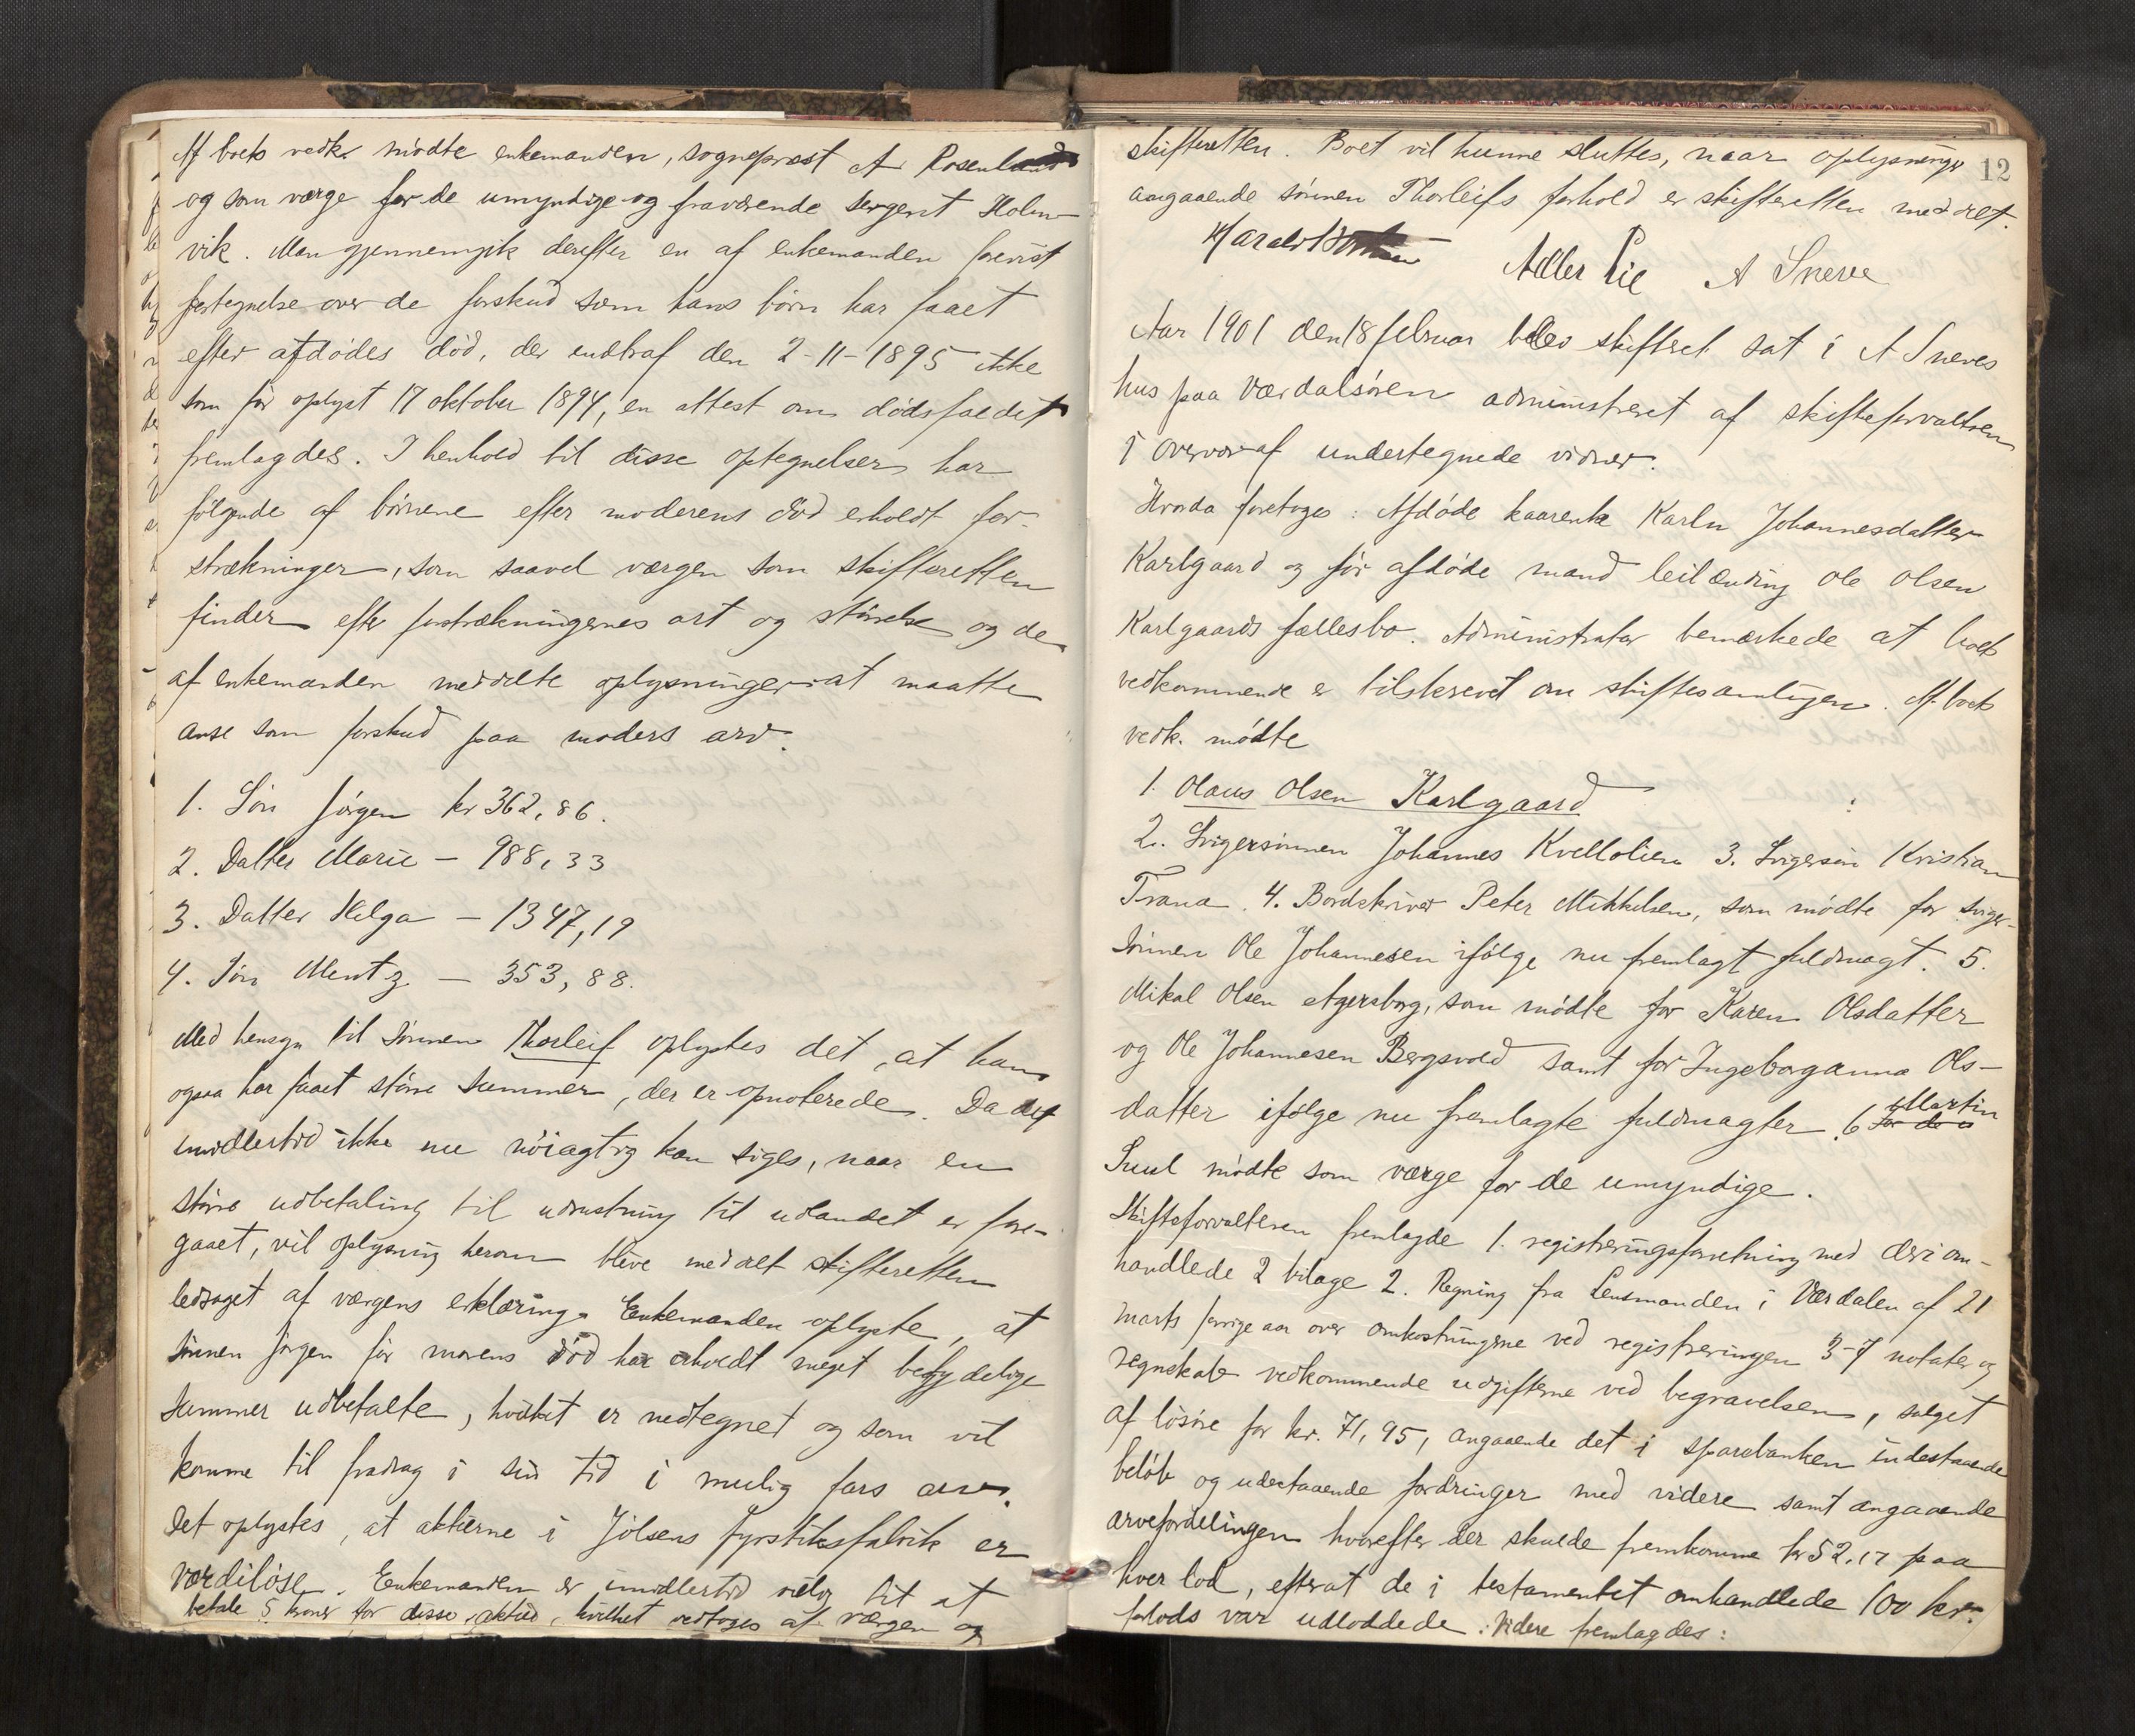 Af boets vedk. mødte enkemanden, sogneprest A Rosenlund
og som værge for de umyndige og fraværende sergent Holm-
vik. Man gjennemgik derefter en af enkemanden forevist
fortegnelse over de forskud som hans børn har faaet
efter afdødes død, der indtraf den 2-11-1895 ikke
som før oplyst 17 oktober 1894, en attest om dødsfaldet
fremlagdes. I henhold til disse optegnelser har
følgende af børnene efter moderens død erholdt for-
strækninger, som saavel værgen som skifteretten
finder efter forstrækningernes art og størrelse og de
af enkemanden meddelte oplysninger at maatte
anse som forskud paa moders arv.
1. Søn Jørgen kr 362,86.
2. Datter Marie – 988,33
3. Datter Helga – 1347,19
4. Søn Mentz – 353,88.
Med hensyn til sønnen Thorleif oplystes det, at han
ogsaa har faaet større summer, der er opnoterede. Da det
imidlertid ikke nu nøiagtig kan siges, naar en
større udbetaling til udrustning til udlandet er fore-
gaaet, vil oplysning herom blive meddelt skifteretten
ledsaget af værgens erklæring. Enkemanden oplyste, at
sønnen Jørgen før morens død har erholdt meget betydelige
summer udbetalte, hvilket er nedtegnet og som vil
komme til fradrag i sin tid i mulig fars arv.
Det oplystes, at aktierne i Jølsens fyrstiksfabrik er
værdiløse. Enkemanden er imidlertid villig til at
betale 5 kroner for disse aktier, hvilket vedtoges af værgen og
12
skifteretten. Boet vil kunne sluttes, naar oplysninger
angaaende sønnen Thorleifs forhold er skifteretten meddelt.
Harald Adler Lie A Sneve
Aar 1901 den 18 februar blev skifteret sat i A Sneves
hus paa Værdalsøren administreret af skifteforvalteren
i overvær af undertegnede vidner.
Hvorda foretoges: Afdøde kaarenke Karln Johannesdatter
Karlgaard og før afdøde mand leilænding Ole Olsen
Karlgaards fællesbo. Administrator bemærkede at boets
vedkommende er tilskrevet om skiftesamlingen. Af boets
vedk. mødte
1. Olaus Olsen Karlgaard
2. Svigersønnen Johannes Kvellolien 3. Svigersøn Kristian
Trana. 4. Bordskriver Peter Mikkelsen, som mødte for sviger-
sønnen Ole Johannesen ifølge nu fremlagt fuldmagt. 5.
Mikal Olsen Agersborg, som mødte for Karen Olsdatter
og Ole Johannesen Bergsvold samt for Ingeborganna Ols-
datter ifølge nu fremlagte fuldmagter. 6 Martin
Suul mødte som værge for de umyndige.
Skifteforvalteren fremlagde 1. registreringsforretning med deri om-
handlede 2 bilage 2. Regning fra Lensmanden i Værdalen af 21
marts forrige aar over omkostningerne ved registreringen 3-7 notater og
regnskab vedkommende udgifterne ved begravelsen, salget
af løsøre for kr. 71,95, angaaende det i sparebanken indestaaende
beløb og udestaaende fordringer med videre samt angaaende
arvefordelingen hvorefter der skulde fremkomme kr 52.17 paa
hver lod, efterat de i testamentet omhandlede 100 kr.
forlods var udloddede. Videre fremlagdes: